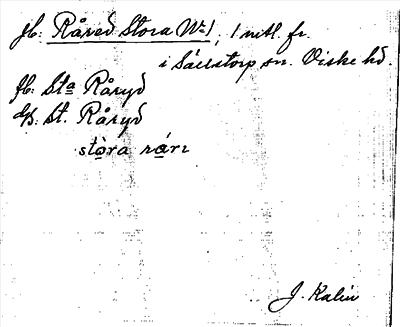 jb: Råred Stora No 1, 1 mtl. fr.
i Sällstorp sn. Viske hd.
fb: Sta Råryd
db: St. Råryd
stòra rárı
J. Kalén